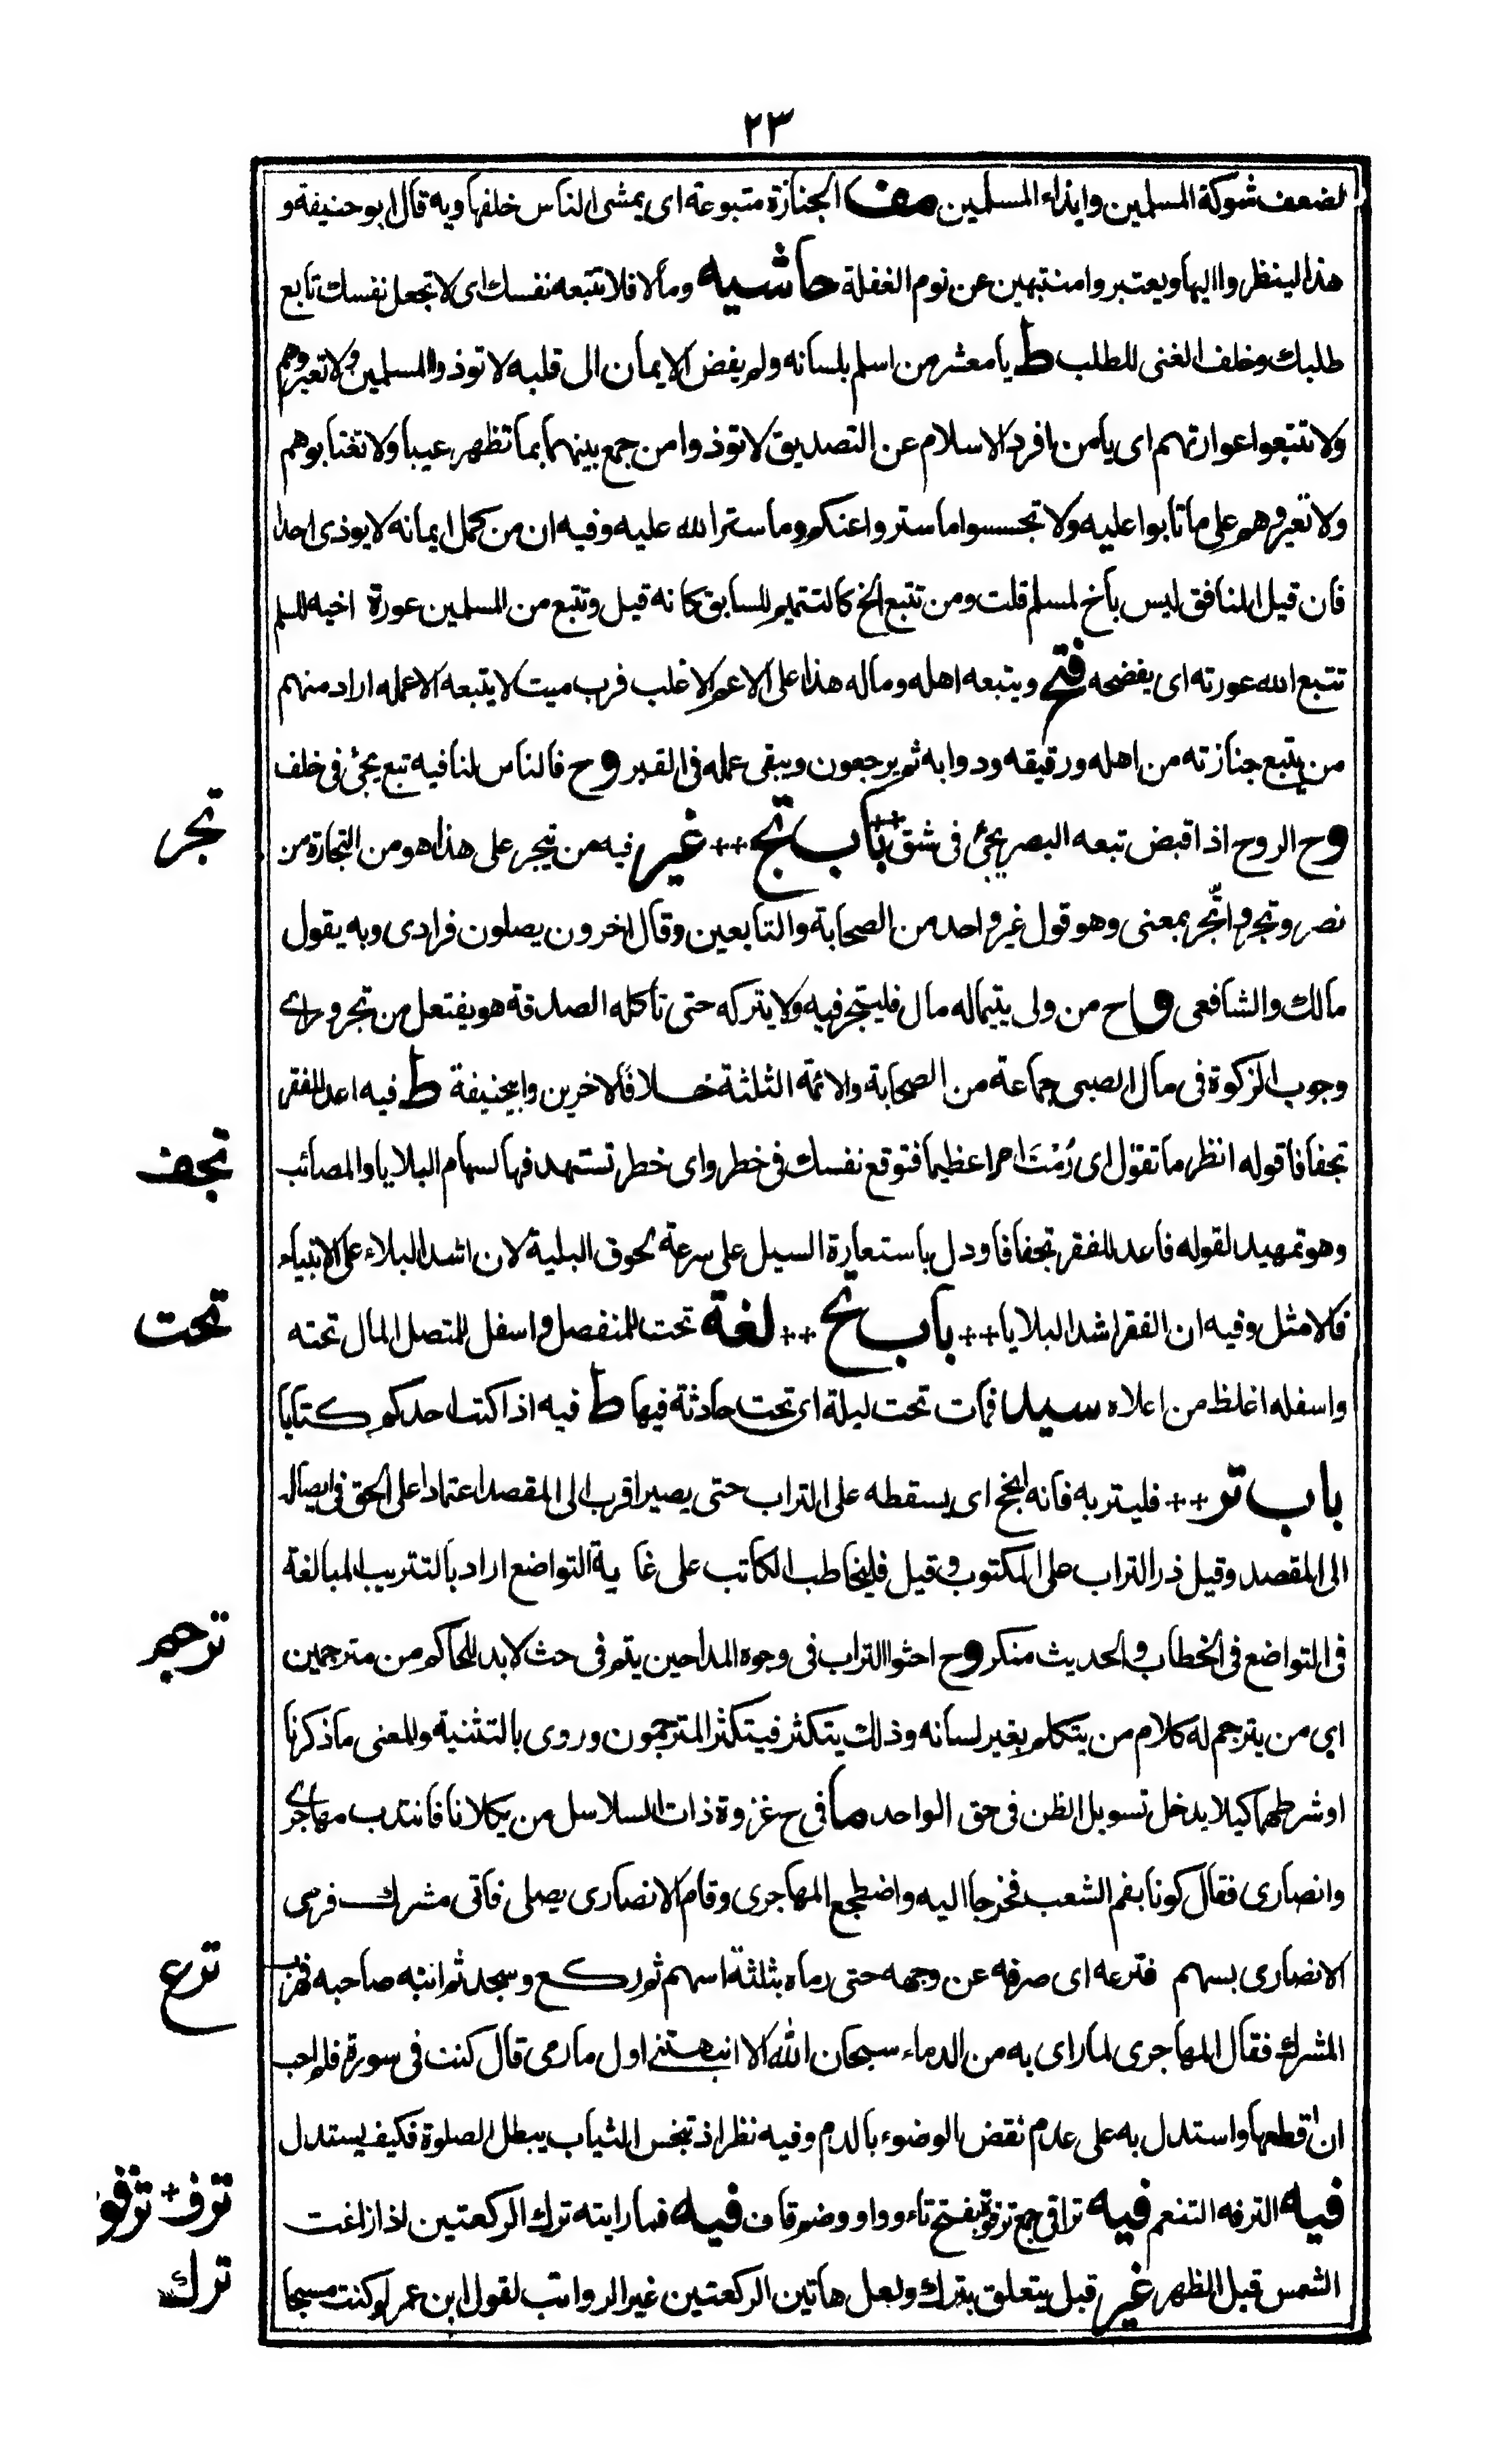 ٢٣
لضعف شوكة المسلمين وايذاء المسلمين مف الجنازة متبوعة اى يمشى الناس خلفها وبه قال ابو حنيفة و
هذا لينظروا اليها ويعتبروا منتبهين عن نوم الغفلة حاشيه وما لا فلا تتبعه نفسك اى لا تجعل نفسك تابع
طلبك وخلف الغنى للطلب ط يا معشر من اسلم بلسانه ولم يفض الايمان الى قلبه لا توذوا المسلمين ولا تعيروهم
ولا تتبعوا عوارتهم اى يا من افرد الاسلام عن التصديق لا توذوا من جمع بينهما بما تظهر عيبا ولا تغتابوهم
ولا تعيروهم على ما تابوا عليه ولا تجسسوا ما ستروا عنكم وما ستر الله عليه وفيه ان من كمل ايمانه لا يوذى احدا
فان قيل المنافق ليس باخ لمسلم قلت ومن تتبع الخ كالتتميم للسابق كانه قيل وتتبع من المسلمين عورة اخيه المسلم
تتبع الله عورته اى يفضحه فتح ويتبعه اهله وماله هذا على الاعم الاغلب فرب ميت لا يتبعه الا عمله اراد منهم
من يتبع جنازته من اهله ورقيقه ودوابه ثم يرجعون ويبقى عمله فى القبر وح فالناس لنا فيه تبع يجئ فى خلف
تجر
وح الروح اذا قبض تبعه البصر يجئ فى شق باب تج ++ غير فيه من يتجر على هذا هو من التجارة من
نصر وتجر واتّجر بمعنى وهو قول غير واحد من الصحابة والتابعين وقال اخرون يصلون فرادى وبه يقول
مالك والشافعى وا ح من ولى يتيما له مال فليتجر فيه ولا يتركه حتى تأكله الصدقة هو يفتعل من تجر وراى
وجوب الزكوة فى مال الصبى جماعة من الصحابة والائمة الثلثة خلافا لاخرين وابيحنيفة ط فيه اعد للفقر
تجف
تجفافا قوله انظر ما تقول اى رُمْتَ امرا عظيما فتوقع نفسك فى خطر واى خطر تستهدفها لسهام البلايا والمصائب
وهو تمهيد لقوله فاعد للفقر تجفافا ودل باستعارة السيل على سرعة لحوق البلية لان اشد البلاء على الانبياء
تحت
فالامثل وفيه ان الفقر اشد البلايا ++ باب تح ++ لغة تحت للمنفصل واسفل للمتصل المال تحته
واسفله اغلظ من اعلاه سيد فمات تحت ليلة اى تحت حادثة فيها ط فيه اذا كتب احدكم كتابا
باب تر ++ فليتربه فانه انجح اى يسقطه على التراب حتى يصير اقرب الى المقصد اعتمادا على الحق فى ايصاله
الى المقصد وقيل ذر التراب على المكتوب وقيل فليخاطب الكاتب على غاية التواضع اراد بالتتريب المبالغة
ترجم
فى التواضع فى الخطاب والحديث منكر وح احثوا التراب فى وجوه المداحين يتم فى حث لا بد للحاكم من مترجمين
اي من يترجم له كلام من يتكلم بغير لسانه وذلك يتكثر فيتكثر المترجمون وروى بالتثنية والمعنى ما ذكرنا
او شرطهما كيلا يدخل تسويل الظن فى حق الواحد ما فى ح غزوة ذات السلاسل من يكلانا فانتدب مهاجرى
وانصارى فقال كونا بفم الشعب فخرجا اليه واضطجع المهاجرى وقام الانصارى يصلى فاتى مشرك فرمى
ترع
الانصارى بسهم فترعه اى صرفه عن وجهه حتى رماه بثلثة اسهم ثم ركع وسجد ثم انتبه صاحبه فهرب
المشرك فقال المهاجرى لما راى به من الدماء سبحان الله الا انبهتنى اول ما رمى قال كنت فى سورة فلم احب
ان اقطعها واستدل به على عدم نقض الوضوء بالدم وفيه نظر اذ تنجس الثياب يبطل الصلوة فكيف يستدل
ترف + ترقو
فيه الترفه التنعم فيه تراقى جمع ترقوة بفتح تاء وواو وضم قاف فيه فما رايته ترك الركعتين اذا زاغت
ترك
الشمس قبل الظهر غير قبل يتعلق بترك ولعل هاتين الركعتين غير الرواتب لقول ابن عمر لو كنت مسبحا